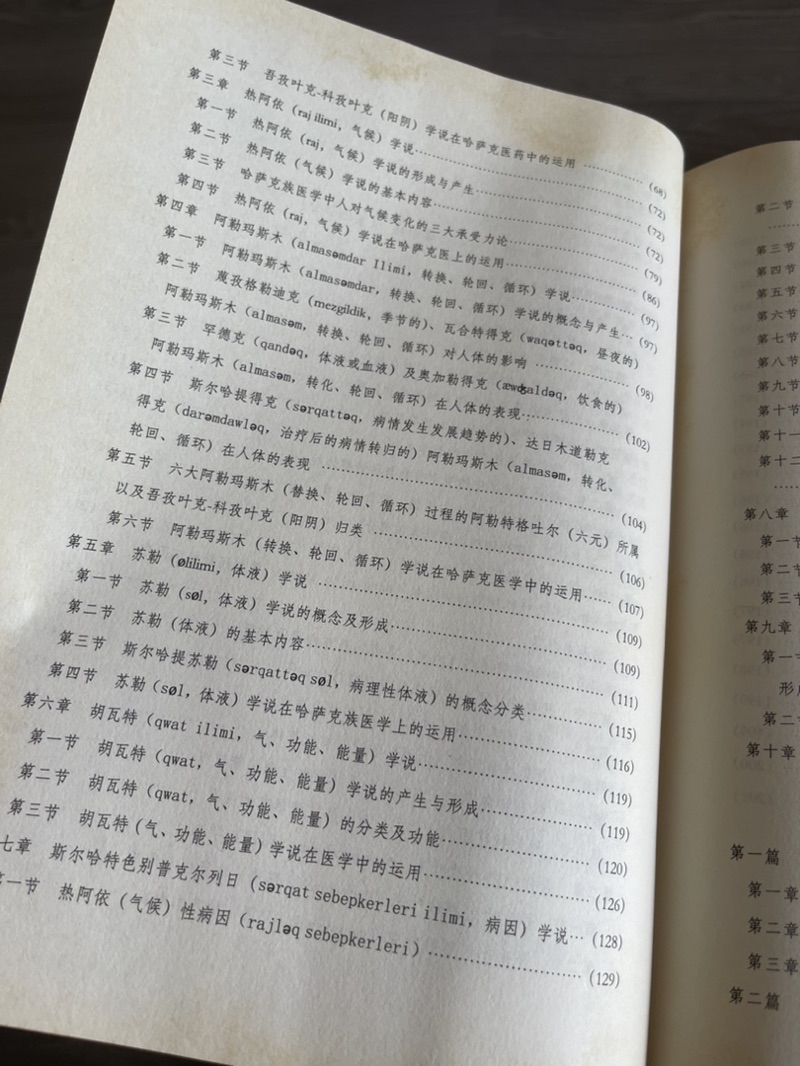 第三节 吾孜叶克-科孜叶克（阳阴）学说在哈萨克医药中的运用 ……………（68）
第三章 热阿依（raj ilimi，气候）学说……………（72）
第一节 热阿依（raj，气候）学说的形成与产生……………（72）
第二节 热阿依（气候）学说的基本内容……………（72）
第三节 哈萨克族医学中人对气候变化的三大承受力论……………（79）
第四节 热阿依（raj，气候）学说在哈萨克医上的运用……………（86）
第四章 阿勒玛斯木（almasəmdar Ilimi，转换、轮回、循环）学说……………（97）
第一节 阿勒玛斯木（almasəmdar，转换、轮回、循环）学说的概念与产生…（97）
第二节 蔑孜格勒迪克（mezgildik，季节的）、瓦合特得克（waqəttəq，昼夜的）
阿勒玛斯木（almasəm，转换、轮回、循环）对人体的影响 ……………（98）
第三节 罕德克（qandəq，体液或血液）及奥加勒得克（æwʤaldəq，饮食的）
阿勒玛斯木（almasəm，转化、轮回、循环）在人体的表现……………（102）
第四节 斯尔哈提得克（sərqattəq，病情发生发展趋势的）、达日木道勒克
得克（darəmdawləq，治疗后的病情转归的）阿勒玛斯木（almasəm，转化、
轮回、循环）在人体的表现 ……………（104）
第五节 六大阿勒玛斯木（替换、轮回、循环）过程的阿勒特格吐尔（六元）所属
以及吾孜叶克-科孜叶克（阳阴）归类 ……………（106）
第六节 阿勒玛斯木（转换、轮回、循环）学说在哈萨克医学中的运用……（107）
第五章 苏勒（ølilimi，体液）学说 ……………（109）
第一节 苏勒（søl，体液）学说的概念及形成……………（109）
第二节 苏勒（体液）的基本内容……………（111）
第三节 斯尔哈提苏勒（sərqattəq søl，病理性体液）的概念分类……………（115）
第四节 苏勒（søl，体液）学说在哈萨克族医学上的运用……………（116）
第六章 胡瓦特（qwat ilimi，气、功能、能量）学说……………（119）
第一节 胡瓦特（qwat，气、功能、能量）学说的产生与形成……………（119）
第二节 胡瓦特（qwat，气、功能、能量）的分类及功能……………（120）
第三节 胡瓦特（气、功能、能量）学说在医学中的运用……………（126）
七章 斯尔哈特色别普克尔列日（sərqat sebepkerleri ilimi，病因）学说…（128）
一节 热阿依（气候）性病因（rajləq sebepkerleri）……………（129）
第二节
……
第三节
第四节
第五节
第六节
第七节
第八节
第九节
第十节
第十一
第十二
……
第八章
第一节
第二节
第三节
第九章
第一节
形成
第二节
第十章
第一篇
第一章
第二章
第三章
第二篇